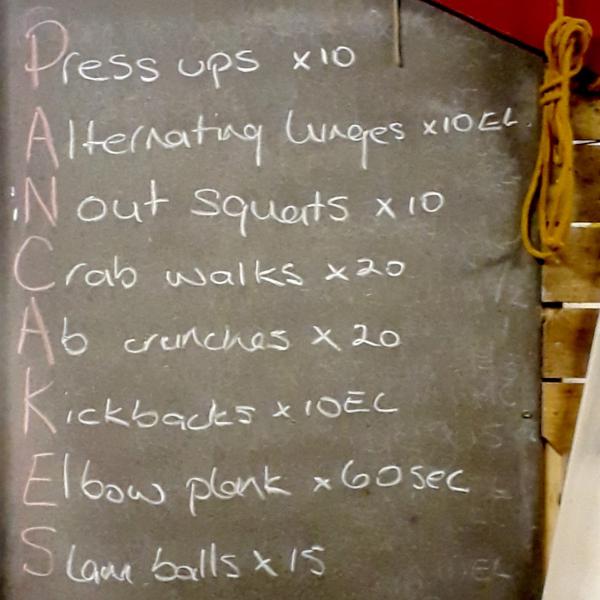 Press ups x10
Alternating lunges x10EL
iN out squats x10
Crab walks x20
Ab crunches x20
Kickbacks x10EL
Elbow plank x60sec
Slam balls x15
EL